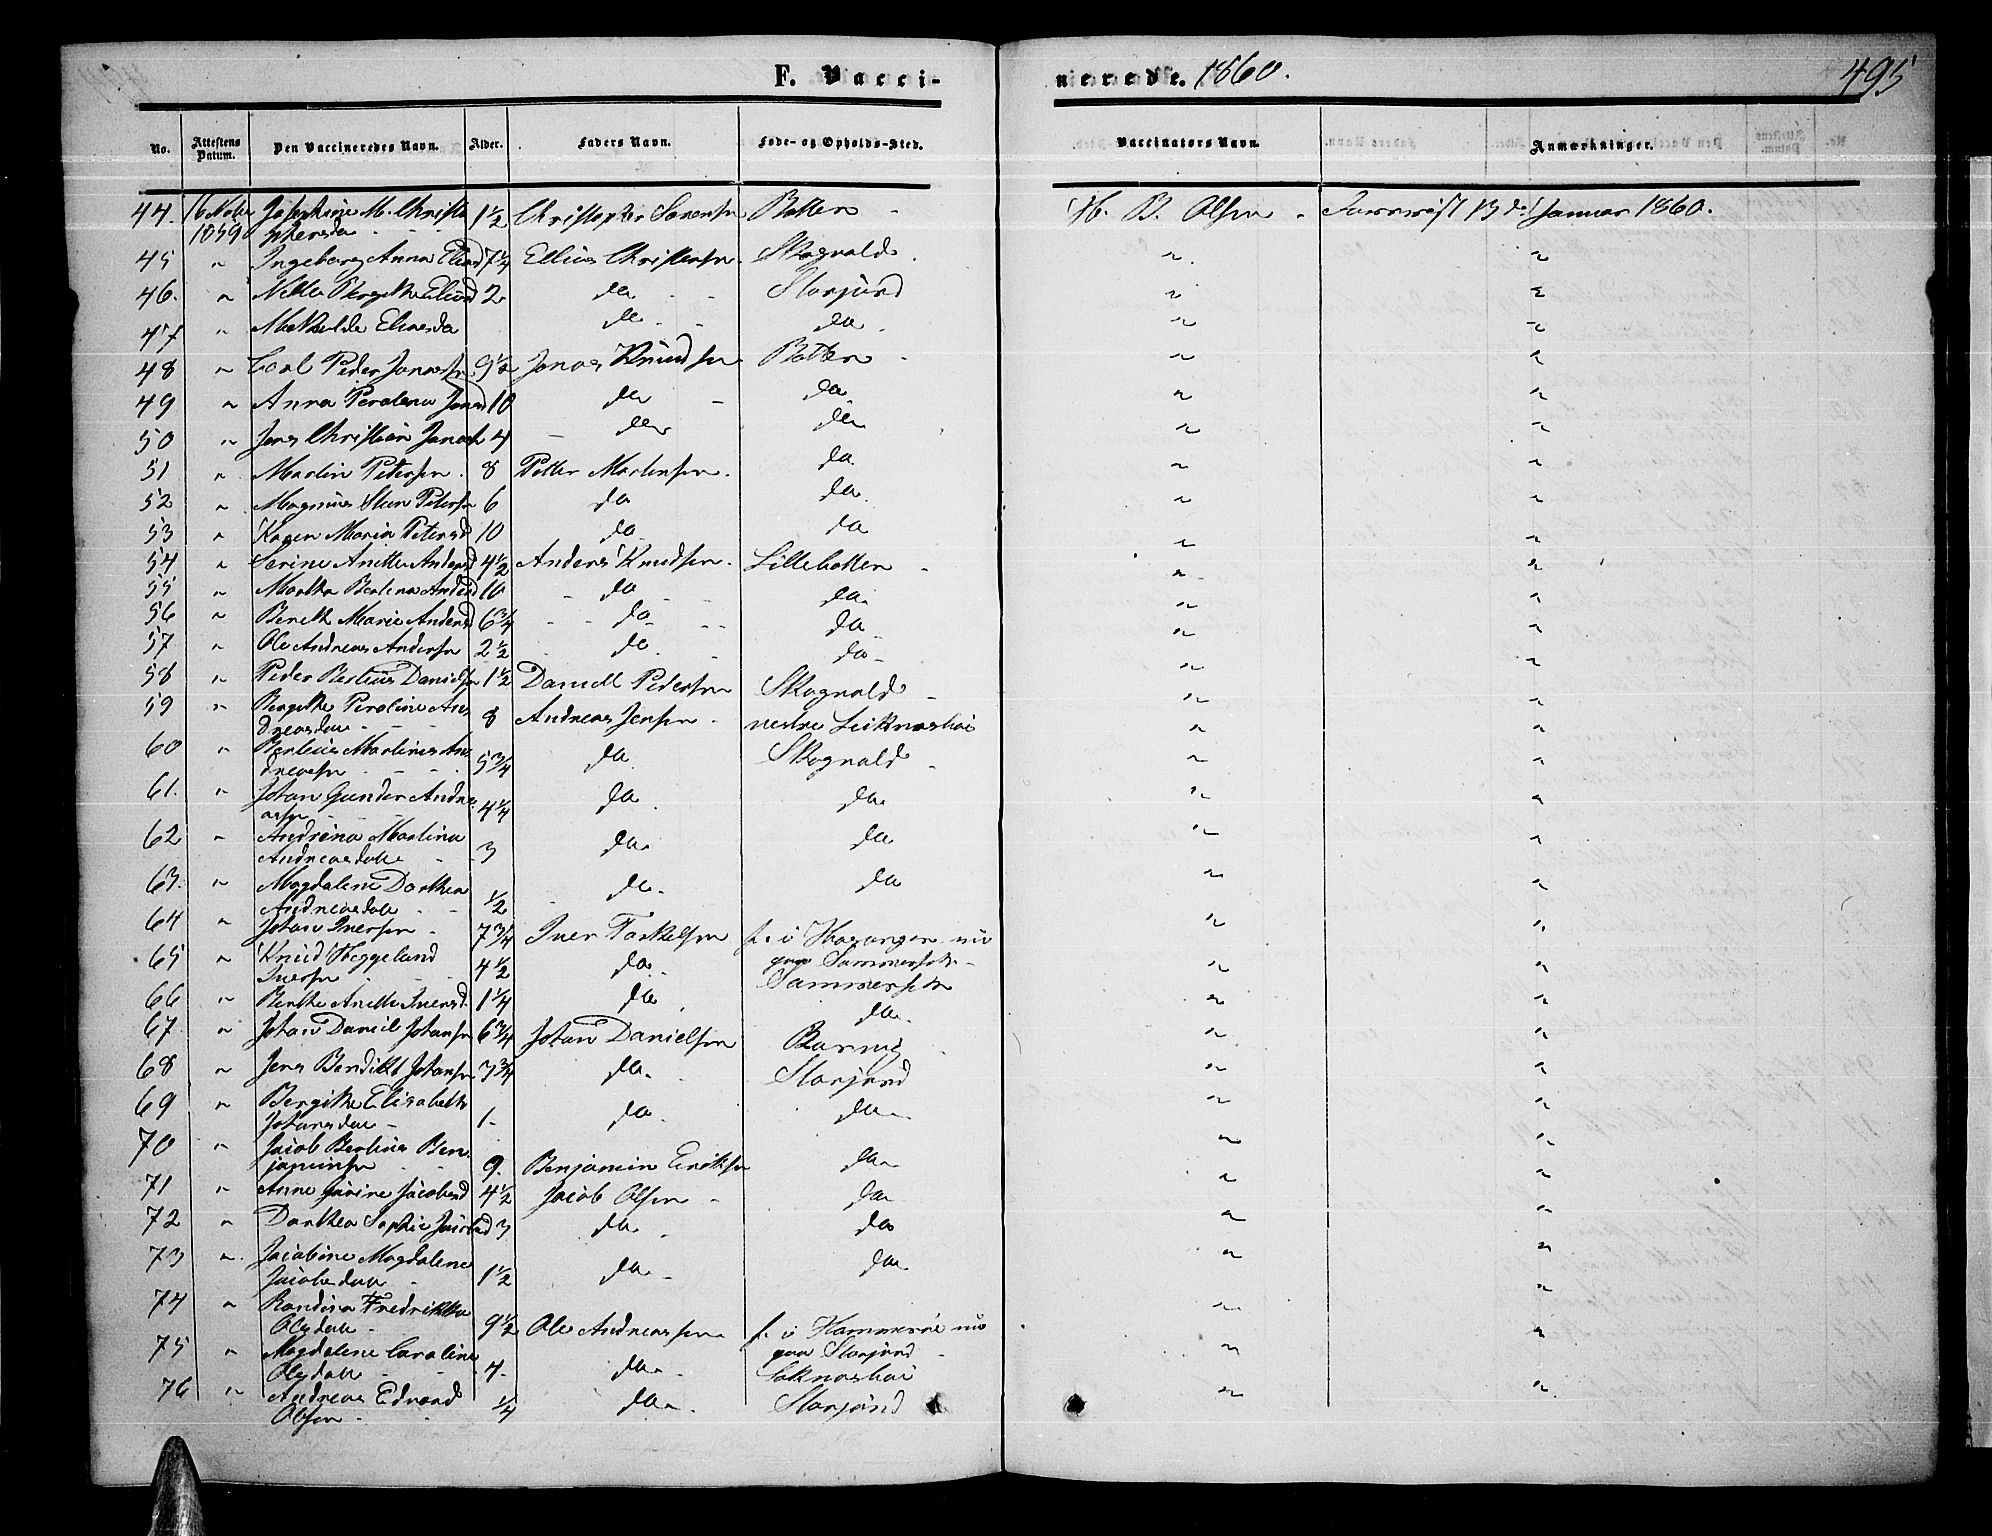 F. Vacci-
nerede. 1860.
495
No. Attestens Datum. Den Vaccineredes Navn. Alder. Faders Navn. Føde- og Opholds-Sted.
Vaccinators Navn. Anmærkninger.
44. 16 Novbr 1859 Josephine M. Christophersda 1½ Christopher Sørensen Botten H. B. Olsen 13de Januar 1860.
45 " Ingeborg Anna Eliasd 7¼ Ellias Christensen Skognald " "
46. " Eliasd 2 do Storjord " "
47 " Mathilda Eliasda do do " "
48 " Carl Peder Jonassn 9½ Jonas Knudsen Botten " "
49 " Anna Perolena Jonasd 10 do do " "
50 " Jens Christian Jonassn 4 do do " "
51 " Martin Petersen 8 Petter Martensen do " "
52 " Magnus Petersn 6 do do " "
53 " Karen Maria Petersd 10 do do " "
54 " Serine Anette Andersd 4½ Anders Knudsen Lillebotten " "
55 " Martha Berlena Andersd 10 do do " "
56 " Bereth Marie Andersd 6¾ do do " "
57 " Ole Andreas Andersn 2½ do do " "
58 " Peder Bertius Danielsn 1½ Daniell Pedersen Skognald " "
59 " Bergithe Peroline Andreasdatt 8 Andreas Jensen vestre " "
60 " Bertius Martinus Andreasn 5¾ do Skognald " "
61. " Johan Gunder Andreasn 4¼ do do " "
62 " Andrina Martina Andreasdatt 3 do do " "
63. " Magdalene Dorthea Andreasdatt ½ do do " "
64 " Johan Iversen 7¾ Iver Torkelsen f. i nu paa Sommerset " "
65 " Knud Heggeland Iversn 4½ do Sommerset " "
66 " Berthe Anette Iversd. 1¼ do do " "
67. " Johan Daniel Johansn 6¾ Johan Danielsen " "
68 " Jens Bendikt Johansn 3¾ do Storjord " "
69 " Bergithe Elisabeth Johansdatt 1 do do " "
70 " Jacob Bertius Benjaminsn 9. Benjamin Eriksn do " "
71 " Anne Jacobsd 4½ Jacob Olsen do " "
72 " Dorthea Sophie Jacobsd 3 do do " "
73 " Jacobine Magdalene Jacobsdatt 1½ do do " "
74 " Randina Fredrikka Olsdatt 9½ Ole Andreassen f. i Hammerøe nu paa Storjord " "
75 " Magdalene Caroline Olsdatt 4. do " "
76 " Andreas Edvard Olsen ¼ do Storjord " "